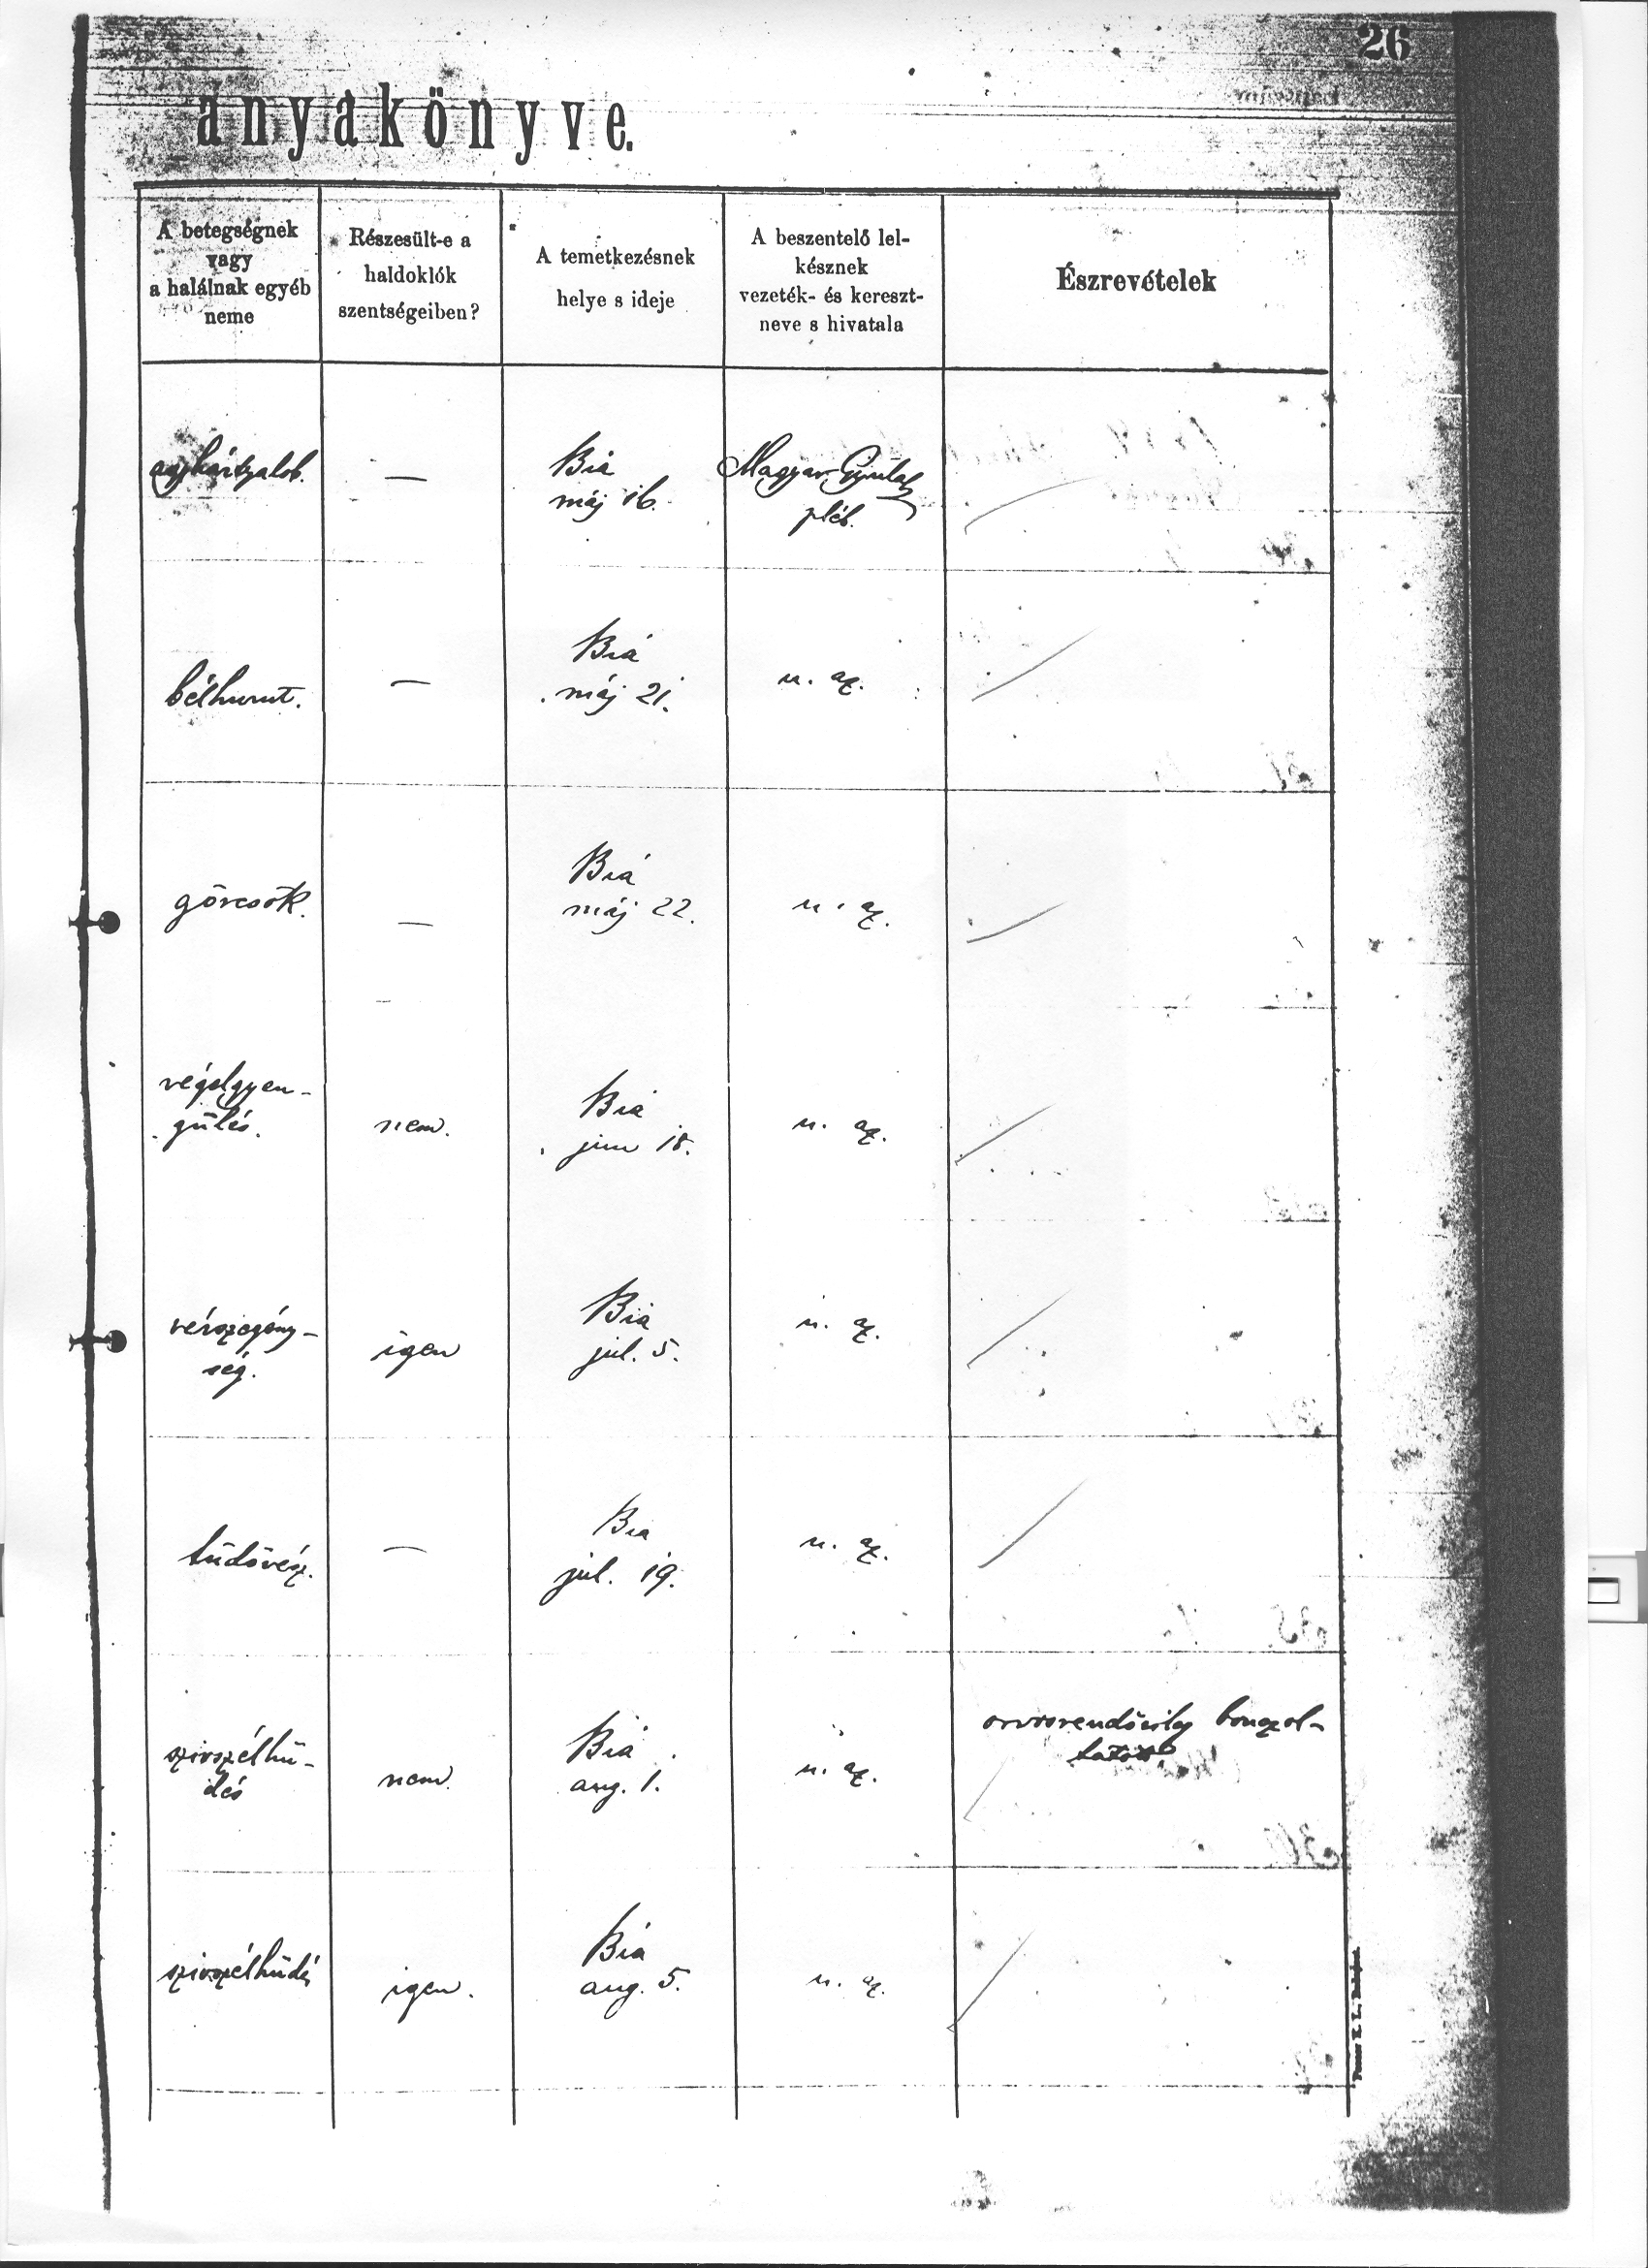 26
anyakönyve.
A betegségnek
vagy
a halálnak egyéb
neme
Részesült-e a
haldoklók
szentségeiben?
A temetkezésnek
helye s ideje
A beszentelő lel-
késznek
vezeték- és kereszt-
neve s hivatala
Észrevételek
agyhártyalob.
—
Bia
máj 16.
Magyar Gyula
pléb.
bélhurut.
—
Bia
máj 21.
u. az.
görcsök.
—
Bia
máj 22.
u. az.
végelgyen-
gülés.
nem.
Bia
jun 18.
u. az.
vérszegény-
ség.
igen
Bia
jul. 5.
u. az.
tüdővész.
—
Bia
jul. 19.
u. az.
szivszélhü-
dés
nem.
Bia
aug. 1.
u. az.
orvosrendőrileg bonczol-
tatott
szivszélhüdés
igen.
Bia
aug. 5.
u. az.